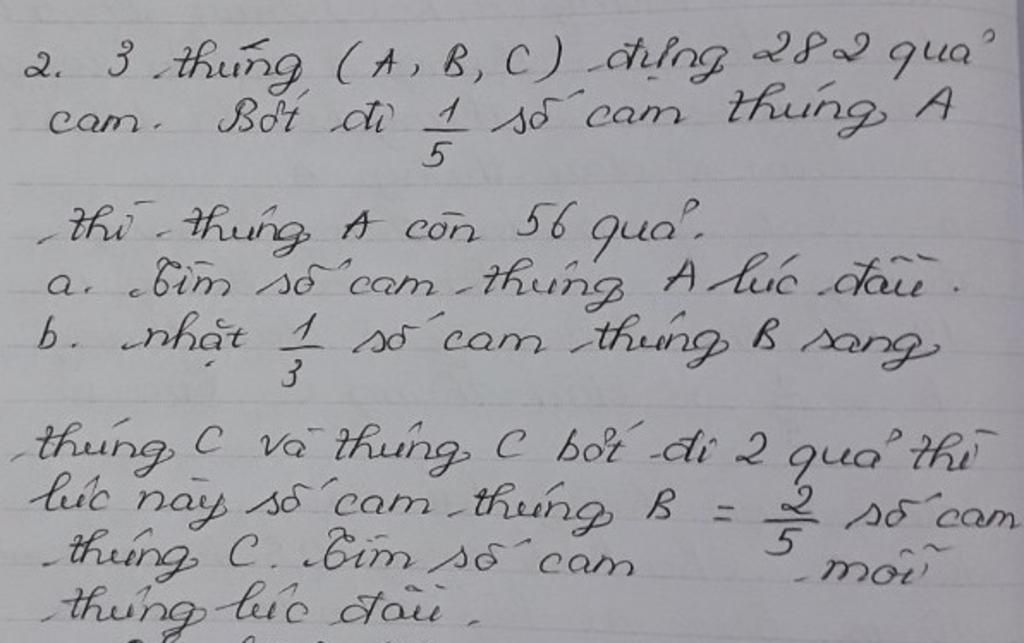 2. 3 thúng (A, B, C) đựng 282 quả
cam. Bớt đi 1/5 số cam thúng A
thì thúng A còn 56 quả.
a. Tìm số cam thúng A lúc đầu.
b. nhặt 1/3 số cam thúng B sang
thúng C và thúng C bớt đi 2 quả thì
lúc này số cam thúng B = 2/5 số cam
thúng C. Tìm số cam mỗi
thúng lúc đầu.